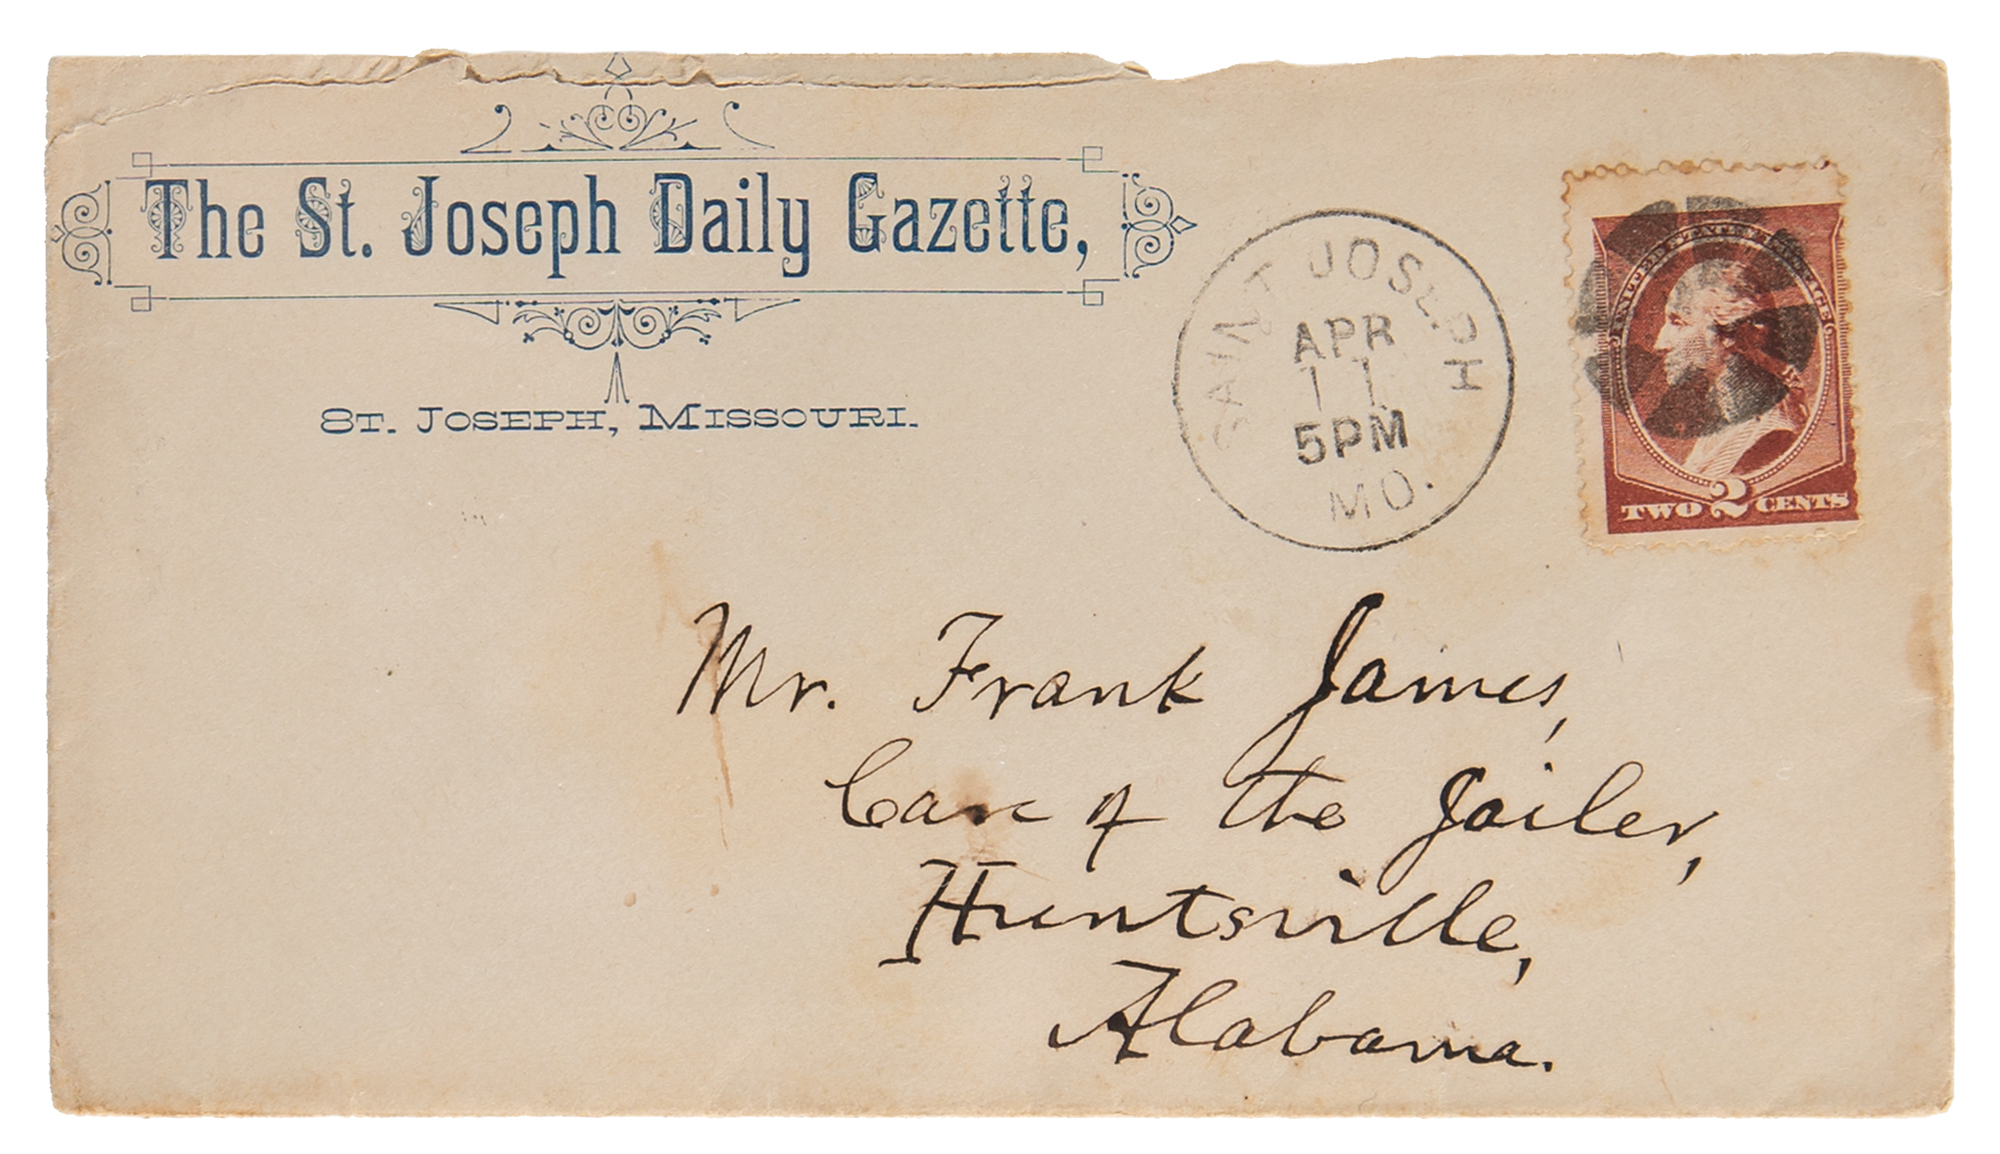 The St. Joseph Daily Gazette,
St. Joseph, Missouri.
SAINT JOSEPH
APR
11
5PM
MO.
TWO 2 CENTS
Mr. Frank James,
Care of the Jailer,
Huntsville,
Alabama.